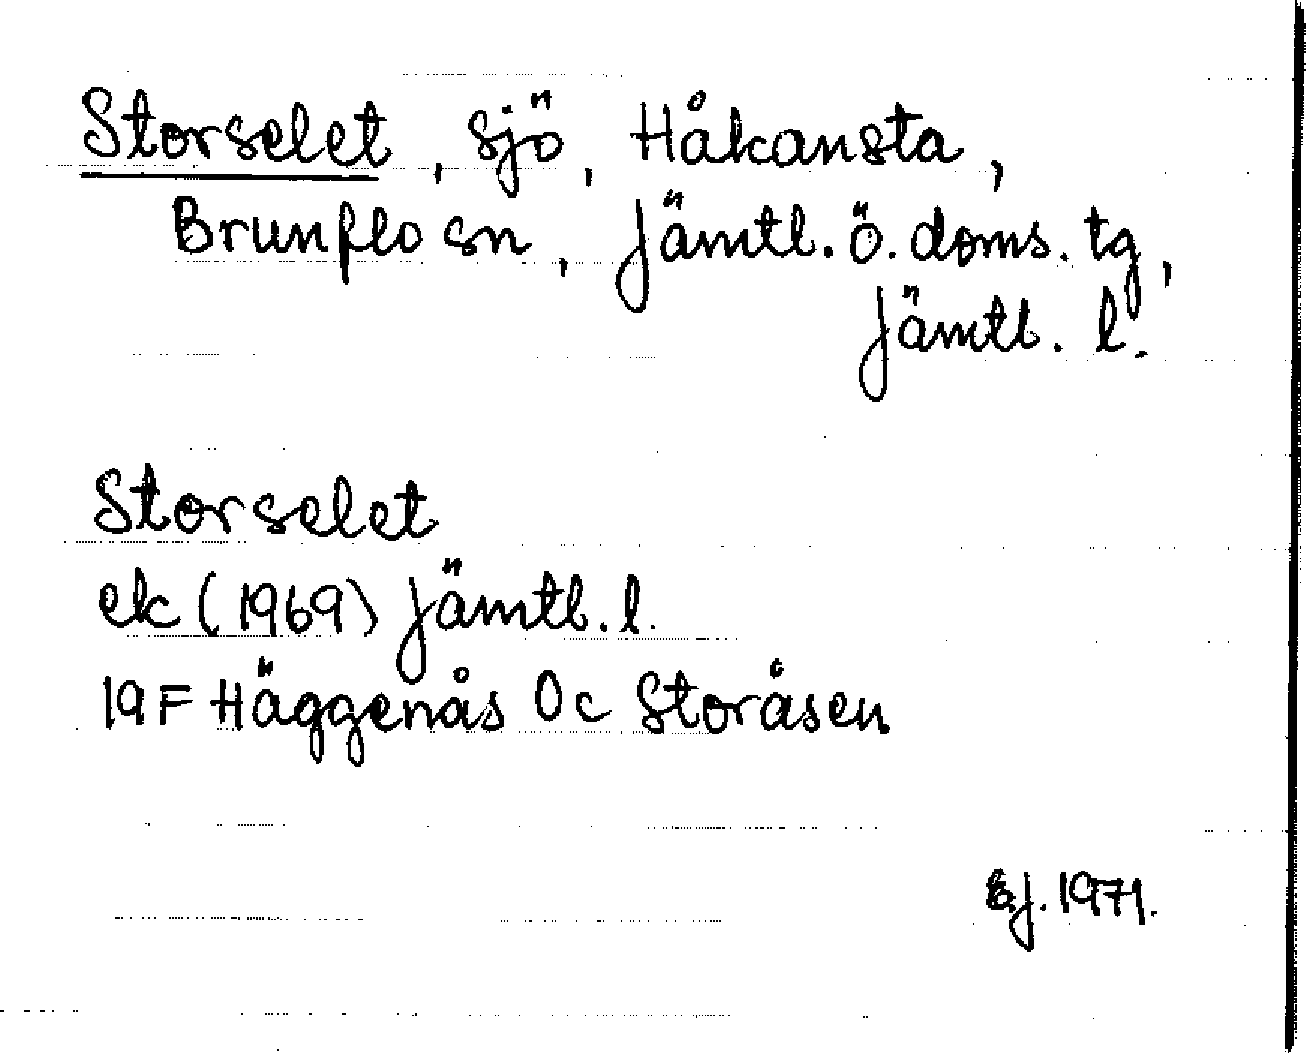 Storselet, sjö, Håkansta,
Brunflo sn, Jämtl. ö. doms. tg,
Jämtl. l.
Storselet
ek (1969) Jämtl. l.
19F Häggenås 0c Storåsen
1971.